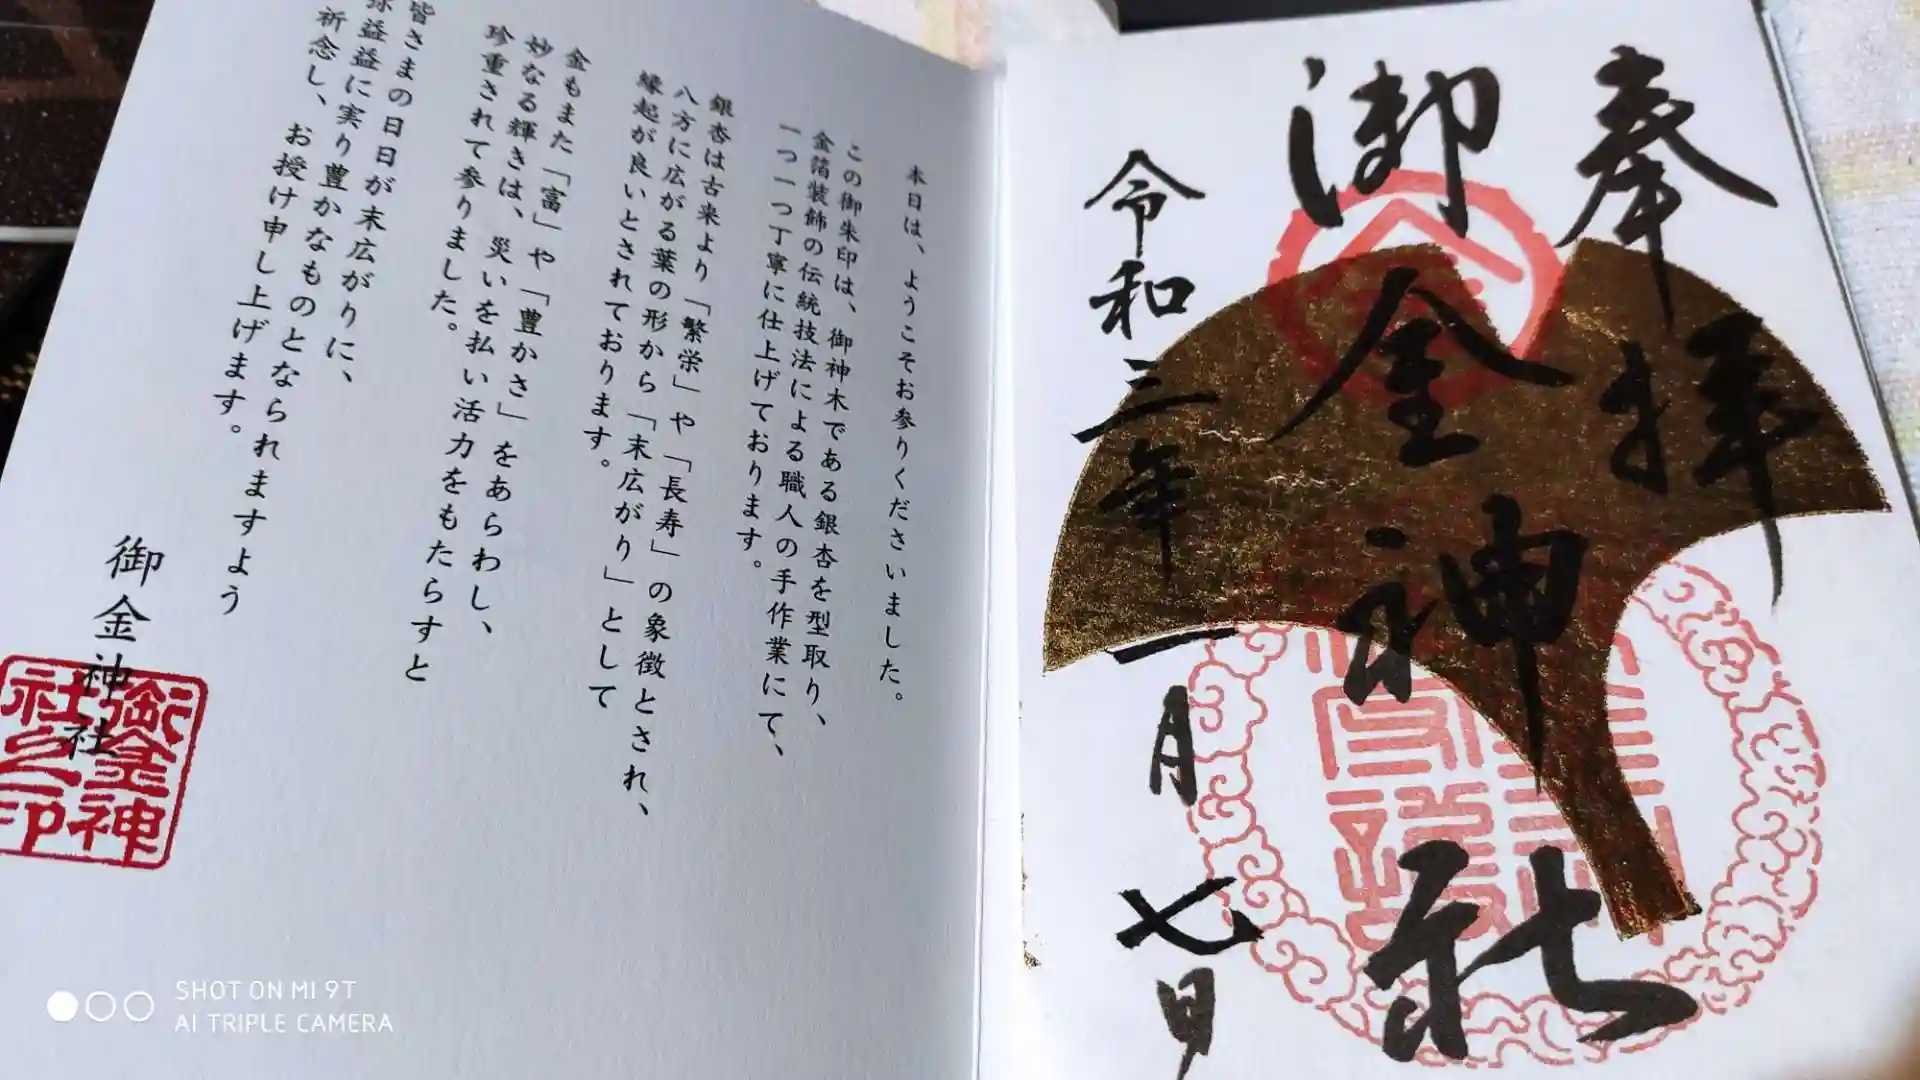 奉拝
御金神社
令和三年一月七日
本日は、ようこそお参りくださいました。
この御朱印は、御神木である銀杏を型取り、
金箔装飾の伝統技法による職人の手作業にて、
一つ一つ丁寧に仕上げております。
銀杏は古来より「繁栄」や「長寿」の象徴とされ、
八方に広がる葉の形から「末広がり」として
縁起が良いとされております。
金もまた「富」や「豊かさ」をあらわし、
妙なる輝きは、災いを払い活力をもたらすと
珍重されて参りました。
皆さまの日日が末広がりに、
弥益益に実り豊かなものとなられますよう
祈念し、お授け申し上げます。
御金神社
御金神社之印
SHOT ON MI 9T
AI TRIPLE CAMERA